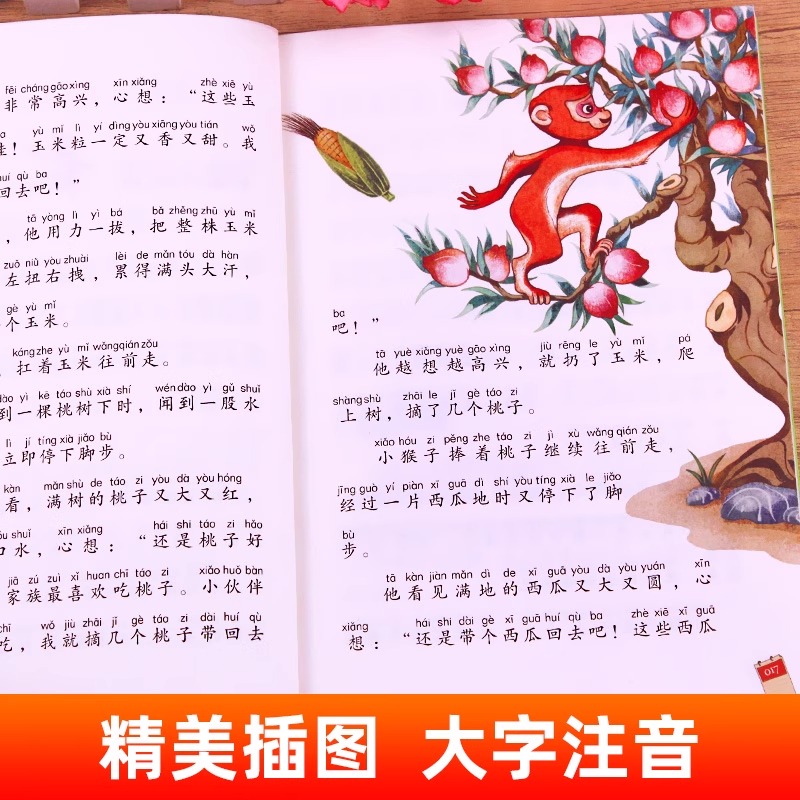 fēi cháng gāo xìng xīn xiǎng zhè xiē yù
非常高兴，心想：“这些玉
yù mǐ lì yí dìng yòu xiāng yòu tián wǒ
！玉米粒一定又香又甜。我
huí qù ba
回去吧！”
tā yòng lì yì bá bǎ zhěng zhū yù mǐ
，他用力一拔，把整株玉米
zuǒ niǔ yòu zhuài lèi de mǎn tóu dà hàn
左扭右拽，累得满头大汗，
gè yù mǐ
个玉米。
káng zhe yù mǐ wǎng qián zǒu
，扛着玉米往前走。
dào yì kē táo shù xià shí wén dào yì gǔ shuǐ
到一棵桃树下时，闻到一股水
lì jí tíng xià jiǎo bù
立即停下脚步。
kàn mǎn shù de táo zi yòu dà yòu hóng
看，满树的桃子又大又红，
kǒu shuǐ xīn xiǎng hái shi táo zi hǎo
口水，心想：“还是桃子好
jiā zú zuì xǐ huan chī táo zi xiǎo huǒ bàn
家族最喜欢吃桃子。小伙伴
chī wǒ jiù zhāi jǐ gè táo zi dài huí qù
吃，我就摘几个桃子带回去
ba
吧！”
tā yuè xiǎng yuè gāo xìng jiù rēng le yù mǐ pá
他越想越高兴，就扔了玉米，爬
shàng shù zhāi le jǐ gè táo zi
上树，摘了几个桃子。
xiǎo hóu zi pěng zhe táo zi jì xù wǎng qián zǒu
小猴子捧着桃子继续往前走，
jīng guò yí piàn xī guā dì shí yòu tíng xià le jiǎo
经过一片西瓜地时又停下了脚
bù
步。
tā kàn jiàn mǎn dì de xī guā yòu dà yòu yuán xīn
他看见满地的西瓜又大又圆，心
xiǎng hái shi dài gè xī guā huí qù ba zhè xiē xī guā
想：“还是带个西瓜回去吧！这些西瓜
017
精美插图 大字注音